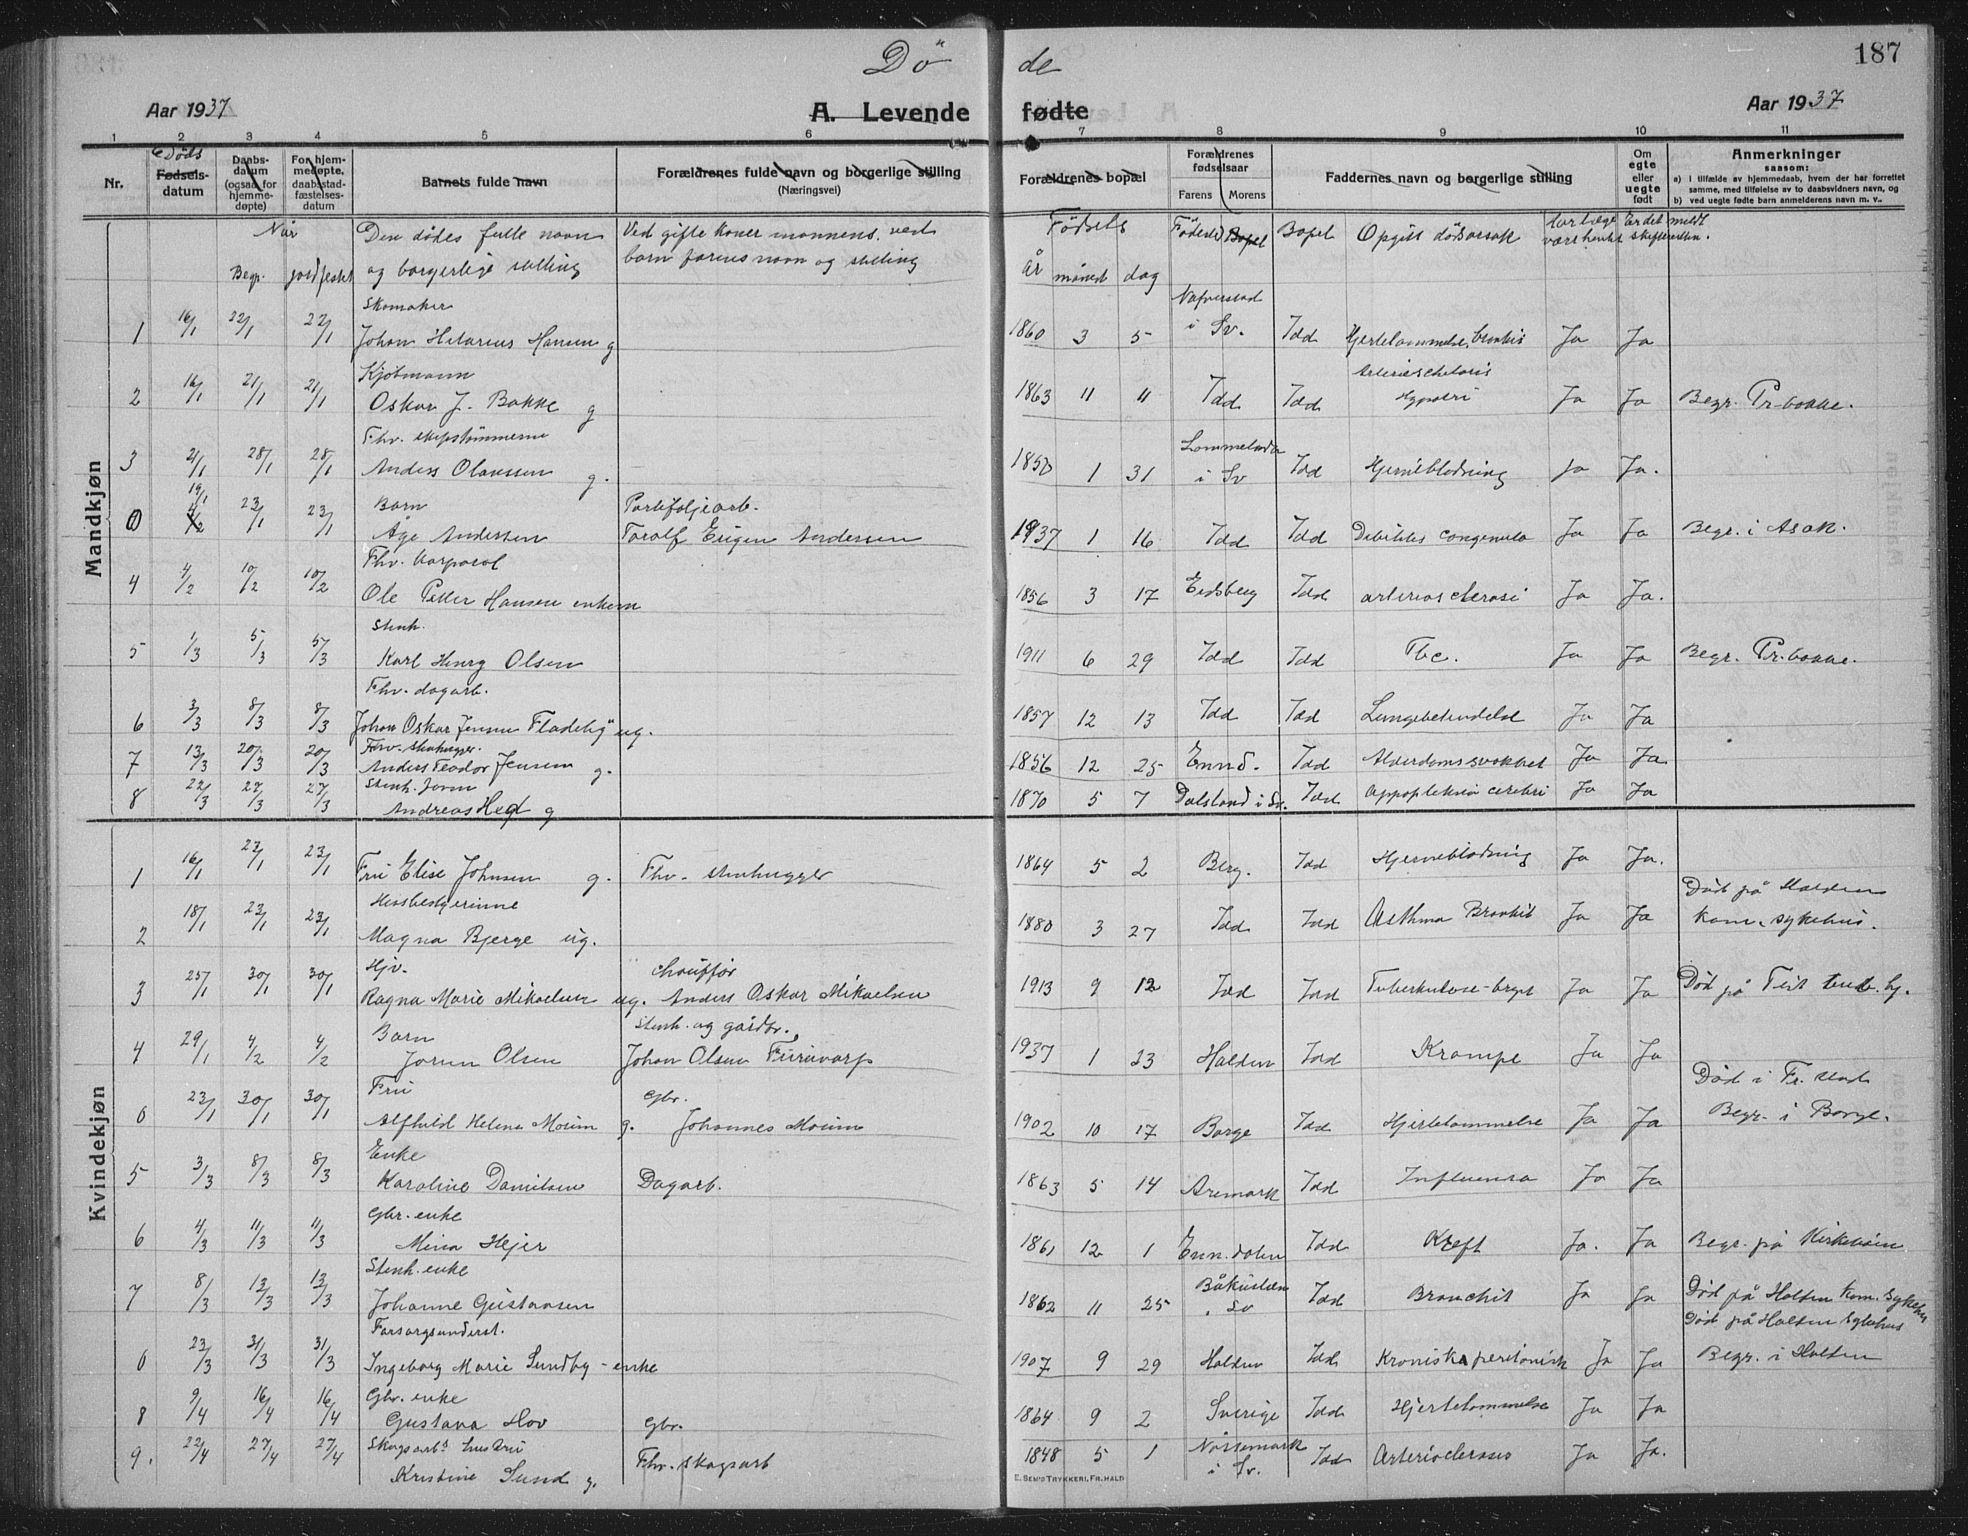 Dø de 187
Aar 1937 A. Levende fødte Aar 1937
1 2 3 4 5 6 7 8 9 10 11
Nr. Døds Fødselsdatum Daabsdatum (ogsaa for hjemmedøpte) For hjemmedøpte, daabsstadfæstelsesdatum Barnets fulde navn Forældrenes fulde navn og borgerlige stilling (Næringsvei) Forældrenes bopæl Forældrenes fødselsaar Farens Morens Faddernes navn og borgerlige stilling Om egte eller uegte født Anmerkninger saasom:
a) i tilfælde av hjemmedaab, hvem der har forrettet samme, med tilføielse av to daabsvidners navn, og
b) ved uegte fødte barn anmelderens navn m. v.
Når Begr. jordfestet Den dødes fulle navn og borgerlige stilling Ved gifte koner mannens, ved barn farens navn og stilling Fødsels år måned dag Fødested Bopel Bopel Opgitt dødsårsak Har læge vært hentet Er det meldt skifteretten.
Mandkjøn
Skomaker
1 16/1 22/1 22/1 Johan Hilarius Hansen g 1860 3 5 Nafverstad i Sv. Idd Hjertelammelse, bronkit Ja Ja
Kjøbmann
2 16/1 21/1 21/1 Oskar J. Bakke g 1863 11 11 Idd Idd Ja Ja Begr. Pr.bakke.
Fhv. skipstømmerm
3 21/1 28/1 28/1 Anders Olaussen g. 1 31 Lommelanda i Sv Idd Hjerneblødning Ja Ja.
Barn Portefoljearb.
0 19/1 23/1 23/1 Åge Andersen Toralf Eugen Andersen 1937 1 16 Idd Idd Debilitas congenita Ja Ja Begr. i Asak.
Fhv. korporal
4 4/2 10/2 10/2 Ole Petter Hansen enkem 1856 3 17 Eidsberg Idd arteriosclerose Ja Ja.
Stenh.
5 1/3 5/3 5/3 Karl Henry Olsen 1911 6 29 Idd Idd Tbc. Ja Ja Begr. Pr.bakke.
Fhv. dagarb.
6 3/3 8/3 8/3 Johan Oskar Jensen Fladeby ug. 1857 12 13 Idd Idd Lungebetendelse Ja Ja
Fhv. stenhugger.
7 13/3 20/3 20/3 Anders Teodor Jensen g. 1856 12 25 Ennd. Idd Alderdomssvakhet Ja Ja
Stenh. form
8 22/3 27/3 27/3 Andreas Hed g 1870 5 7 Dalsland i Sv. Idd Appopleksia cerebri Ja Ja
Kvindekjøn
1 16/1 23/1 23/1 Fru Elise Johnsen g. Fhv. stenhugger 1864 5 2 Berg. Idd Hjerneblødning Ja Ja.
Husbestyrerinne
2 18/1 23/1 23/1 Magna Bjerge ug. 1880 3 27 Idd Idd Asthma Bronkit Ja Ja Død på Halden kom. sykehus.
Hjv. Chauffør
3 25/1 30/1 30/1 Ragna Marie Mikaelsen ug. Anders Oskar Mikaelsen 1913 9 12 Idd Idd Tuberkulose-bryst Ja Ja Død på
Barn Stenh. og gårdbr.
4 29/1 4/2 4/2 Jorun Olsen Johan Olsen Furuvarp 1937 1 23 Halden Idd Krampe Ja Ja
Fru Gbr.
0 23/1 30/1 30/1 Alfhild Helene Moum g. Johannes Moum 1902 10 17 Borge Idd Hjertelammelse Ja Ja Død i Fr.stad Begr. i Borge.
Enke
5 3/3 8/3 8/3 Karoline Danielsen Dagarb. 1863 5 14 Aremark Idd Influensa Ja Ja
Gbr. enke
6 4/3 11/3 11/3 Mina Hejer 1861 12 1 Enn.dalen Idd Kreft Ja. Ja Begr. på Kirkebøen
Stenh. enke
7 8/3 13/3 13/3 Johanne Gustavsen 1862 11 25 i Sv Idd Bronchit Ja Ja Død på Halden kom. sykehus
Forsorgsunderst. Død på Halden sykehus
0 23/3 31/3 31/3 Ingeborg Marie Sundby - enke 1907 9 29 Halden Idd Kronisk peritonit Ja Ja Begr. i Halden
Gbr. enke
8 9/4 16/4 16/4 Gustava Hov Gbr. 1864 9 2 Sverige Idd Hjertelammelse Ja Ja
Skogsarb's hustru
9. 22/4 27/4 27/4 Kristine Lund g. Fhv. skogsarb 1848 5 1 Nössemark i Sv. Idd Arterioclerosis Ja Ja.
E. SEM'S TRYKKERI, FR.HALD